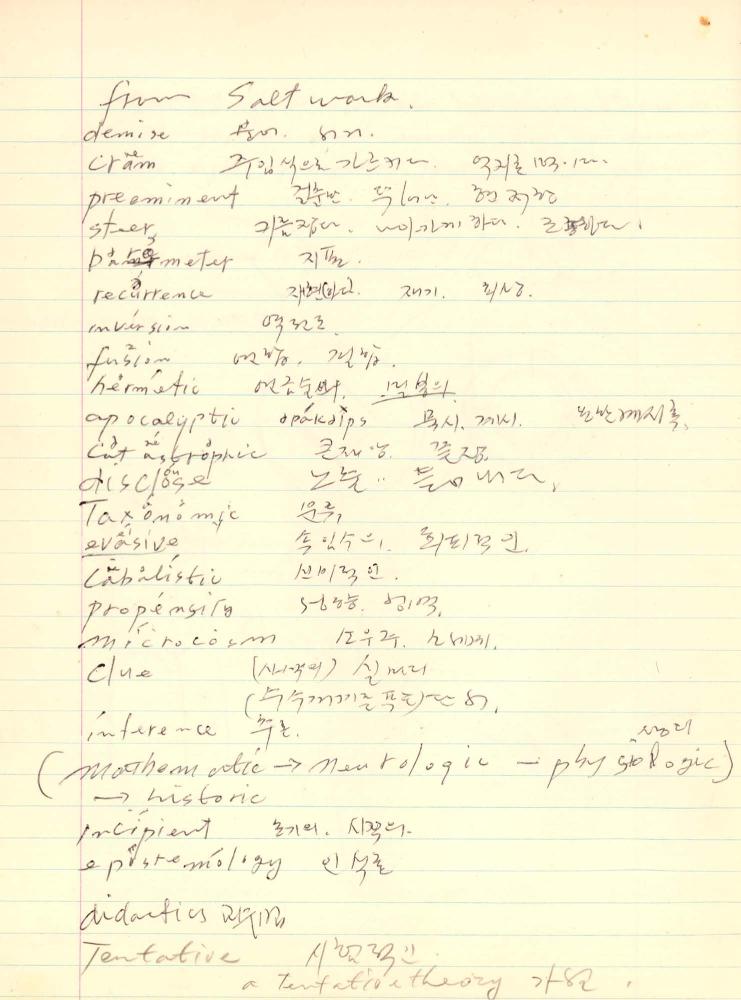 from Saltwork.
demise
cram 주입식으로 가르키다. 억지로
preeminent 걸출난. 뛰어난. 현저한
steer 키를잡다. 나아가게 하다.
parameter 지표.
recurrence 재현(하다). 재기. 회상.
inversion 역전도
fusion 연합. 결합.
hermetic 연금술의. 밀봉의
apocalyptic 묵시. 계시.
catastrophic 큰재앙. 끝장.
disclose 노출.. 들어내다.
Taxonomic 분류,
evasive 속임수의. 회피적인.
Cabalistic 신비적인.
propensity 성향.
microcosm 소우주. 소세계.
Clue (사냥꾼의) 실마리
inference 추론.
(mathematic → neurologic — physiologic)
→ historic
incipient 초기의. 시작의.
epistemology 인식론
didactics 교수법
Tentative 시험적인.
a tentative theory 가설.